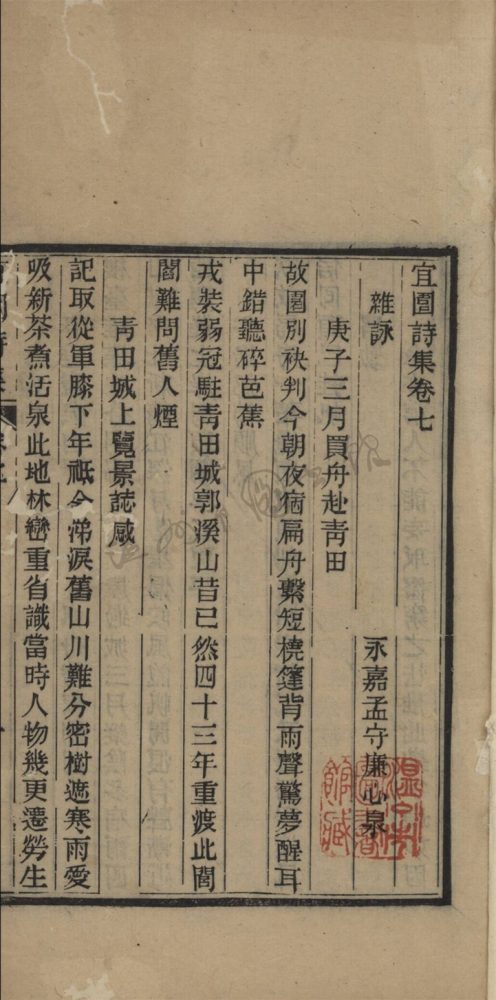 宜園詩集卷七
雜詠
永嘉孟守廉心泉
庚子三月買舟赴靑田
故園別袂判今朝夜宿扁舟繫短橈篷背雨聲驚夢醒耳
中錯聽碎芭蕉
戎裝弱冠駐靑田城郭溪山昔已然四十三年重渡此閭
閻難問舊人煙
靑田城上覽景誌感
記取從軍膝下年祇今涕淚舊山川難分密樹遮寒雨愛
吸新茶煮活泉此地林巒重省識當時人物幾更遷勞生